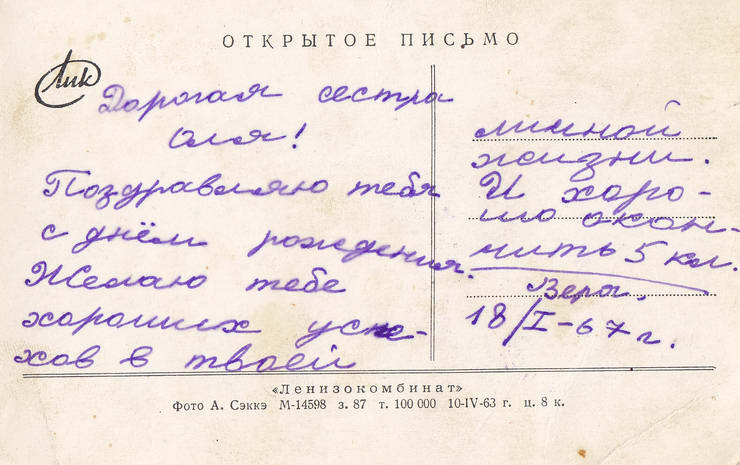 ОТКРЫТОЕ ПИСЬМО
Лик
Дорогая сестра
Оля!
Поздравляю тебя
с днём рождения.
Желаю тебе
хороших успе-
хов в твоей
личной
жизни.
И хоро-
шо окон-
чить 5 кл.
Вера.
18/I-67г.
«Ленизокомбинат»
Фото А. Сэккэ М-14598 з. 87 т. 100 000 10-IV-63 г. ц. 8 к.